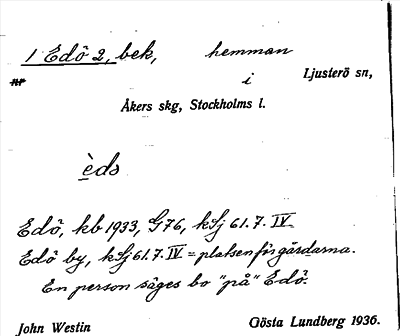 1 Edö 2, bek, hemman
nr i Ljusterö sn,
Åkers skg, Stockholms l.
èds
Edö, kb 1933, G76, kSj 61.7. IV.
Edö by, kSj 61.7. IV = platsen för gårdarna.
En person säges bo "på" Edö.
John Westin Gösta Lundberg 1936.